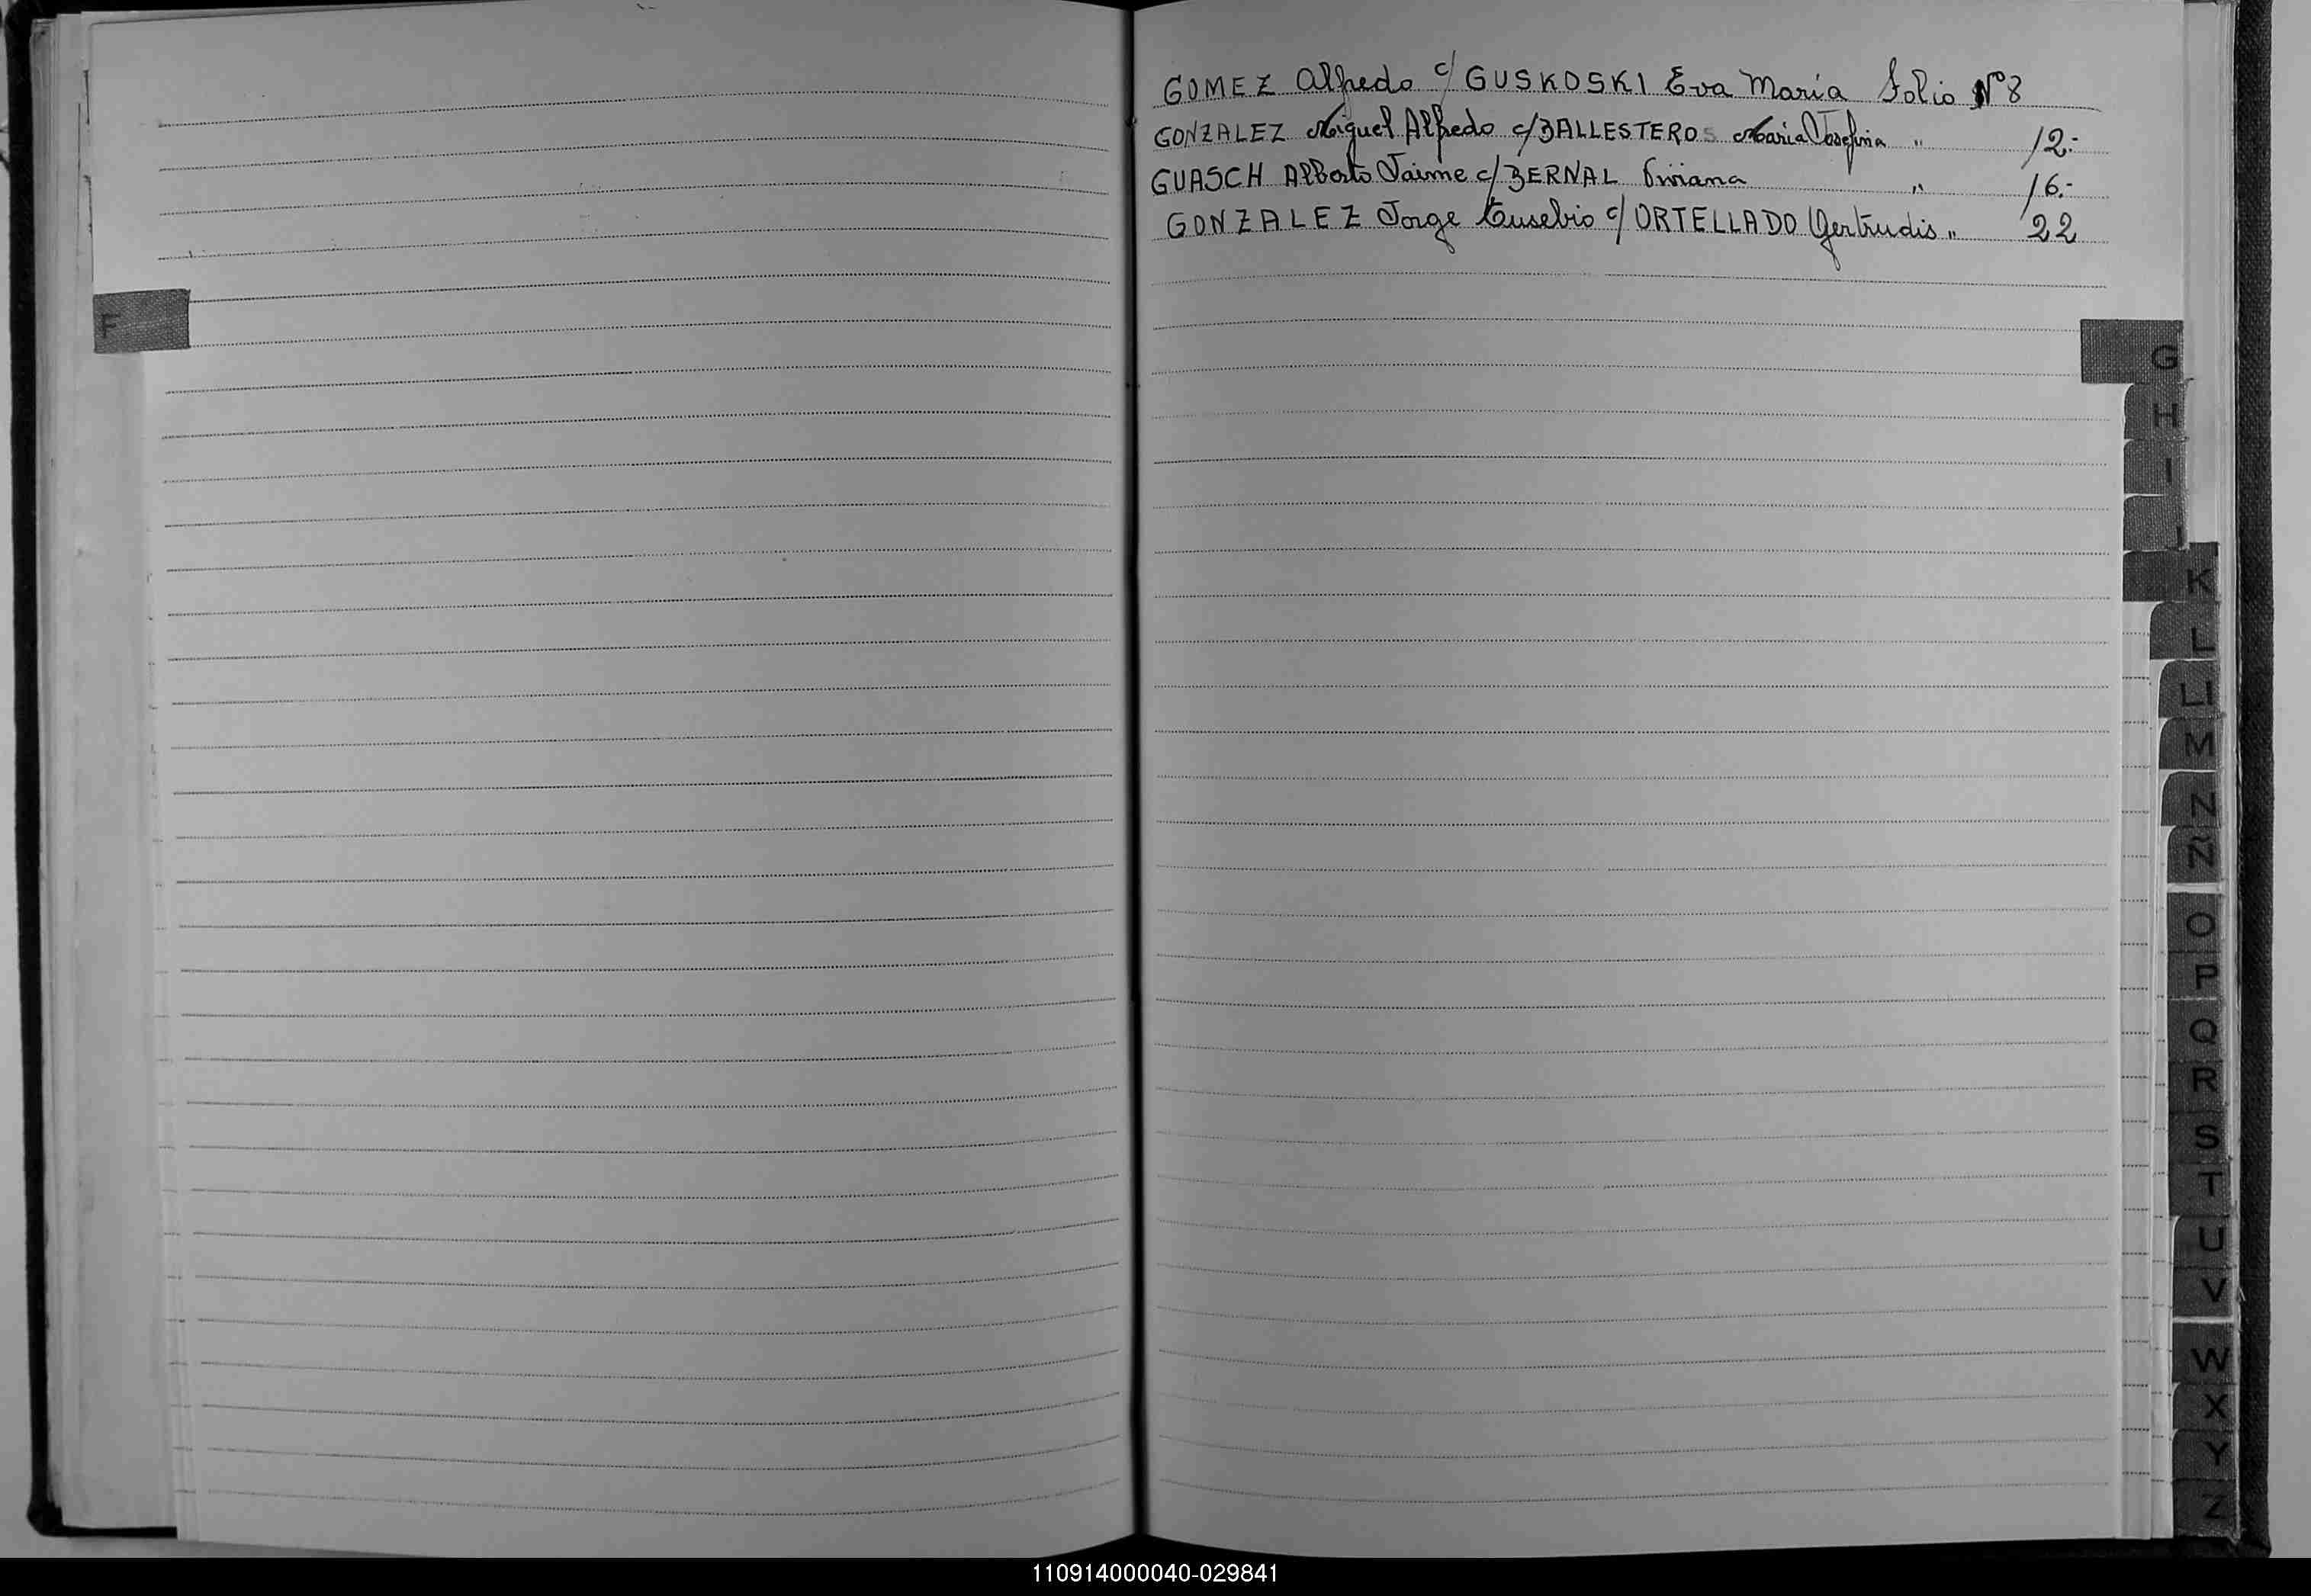 GOMEZ Alfredo c/ GUSKOSKI Eva María Folio Nº 8
GONZALEZ Miguel Alfredo c/ BALLESTEROS Maria Josefina " 12.-
GUASCH Alberto Jaime c/ BERNAL Viviana " 16.-
GONZALEZ Jorge Eusebio c/ ORTELLADO Gertrudis " 22
F
G
H
I
J
K
L
Ll
M
N
Ñ
O
P
Q
R
S
T
U
V
W
X
Y
Z
110914000040-029841